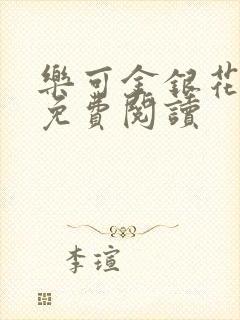 樂可金銀花
免費閱讀
李瑄